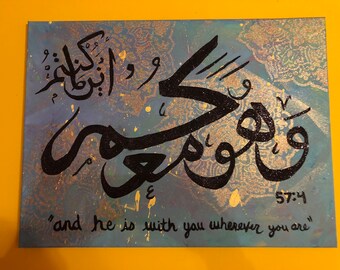 وَهُوَ مَعَكُمْ
أَيْنَ مَا كُنْتُمْ
57:4
"and he is with you wherever you are"